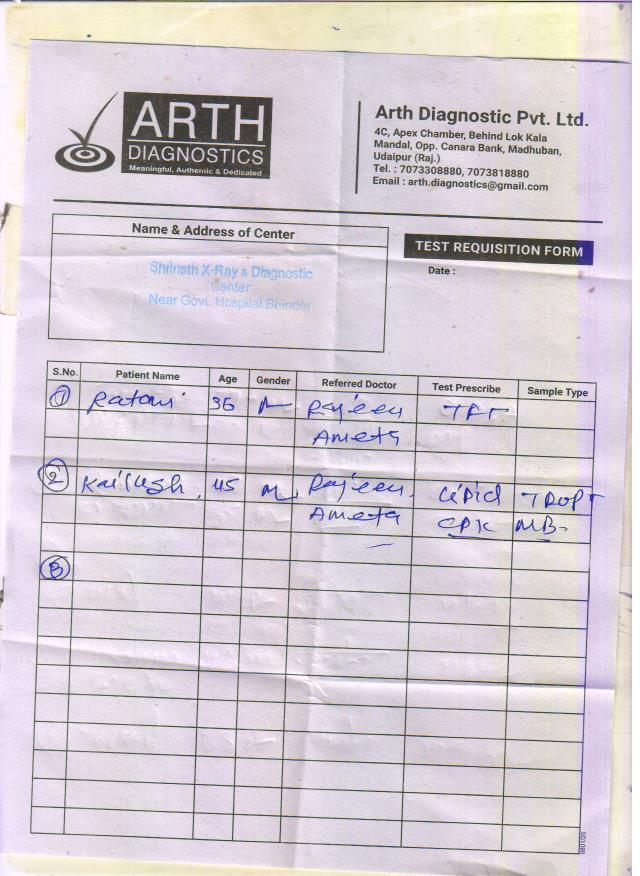 ARTH
DIAGNOSTICS
Meaningful, Authentic & Dedicated
Arth Diagnostic Pvt. Ltd.
4C, Apex Chamber, Behind Lok Kala
Mandal, Opp. Canara Bank, Madhuban,
Udaipur (Raj.)
Tel. : 7073308880, 7073818880
Email : arth.diagnostics@gmail.com
Name & Address of Center
Shrinath X-Ray & Diagnostic
Center
Near Govt. Hospital Bhinder
TEST REQUISITION FORM
Date :
S.No. Patient Name Age Gender Referred Doctor Test Prescribe Sample Type
1 Ratani 36 Rajeev
Ameta
2 Kailash 45 M Rajeev Lipid TROPT
Ameta CPK MB
3